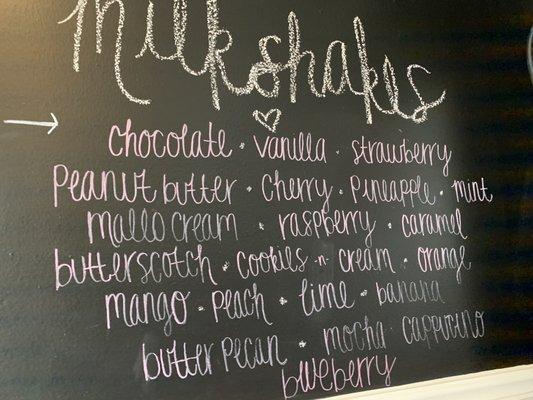 milkshakes
chocolate • vanilla • strawberry
Peanut butter • cherry • pineapple • mint
mallo cream • raspberry • caramel
butterscotch • cookies -n- cream • orange
mango • peach • lime • banana
butter pecan • mocha cappucino
blueberry